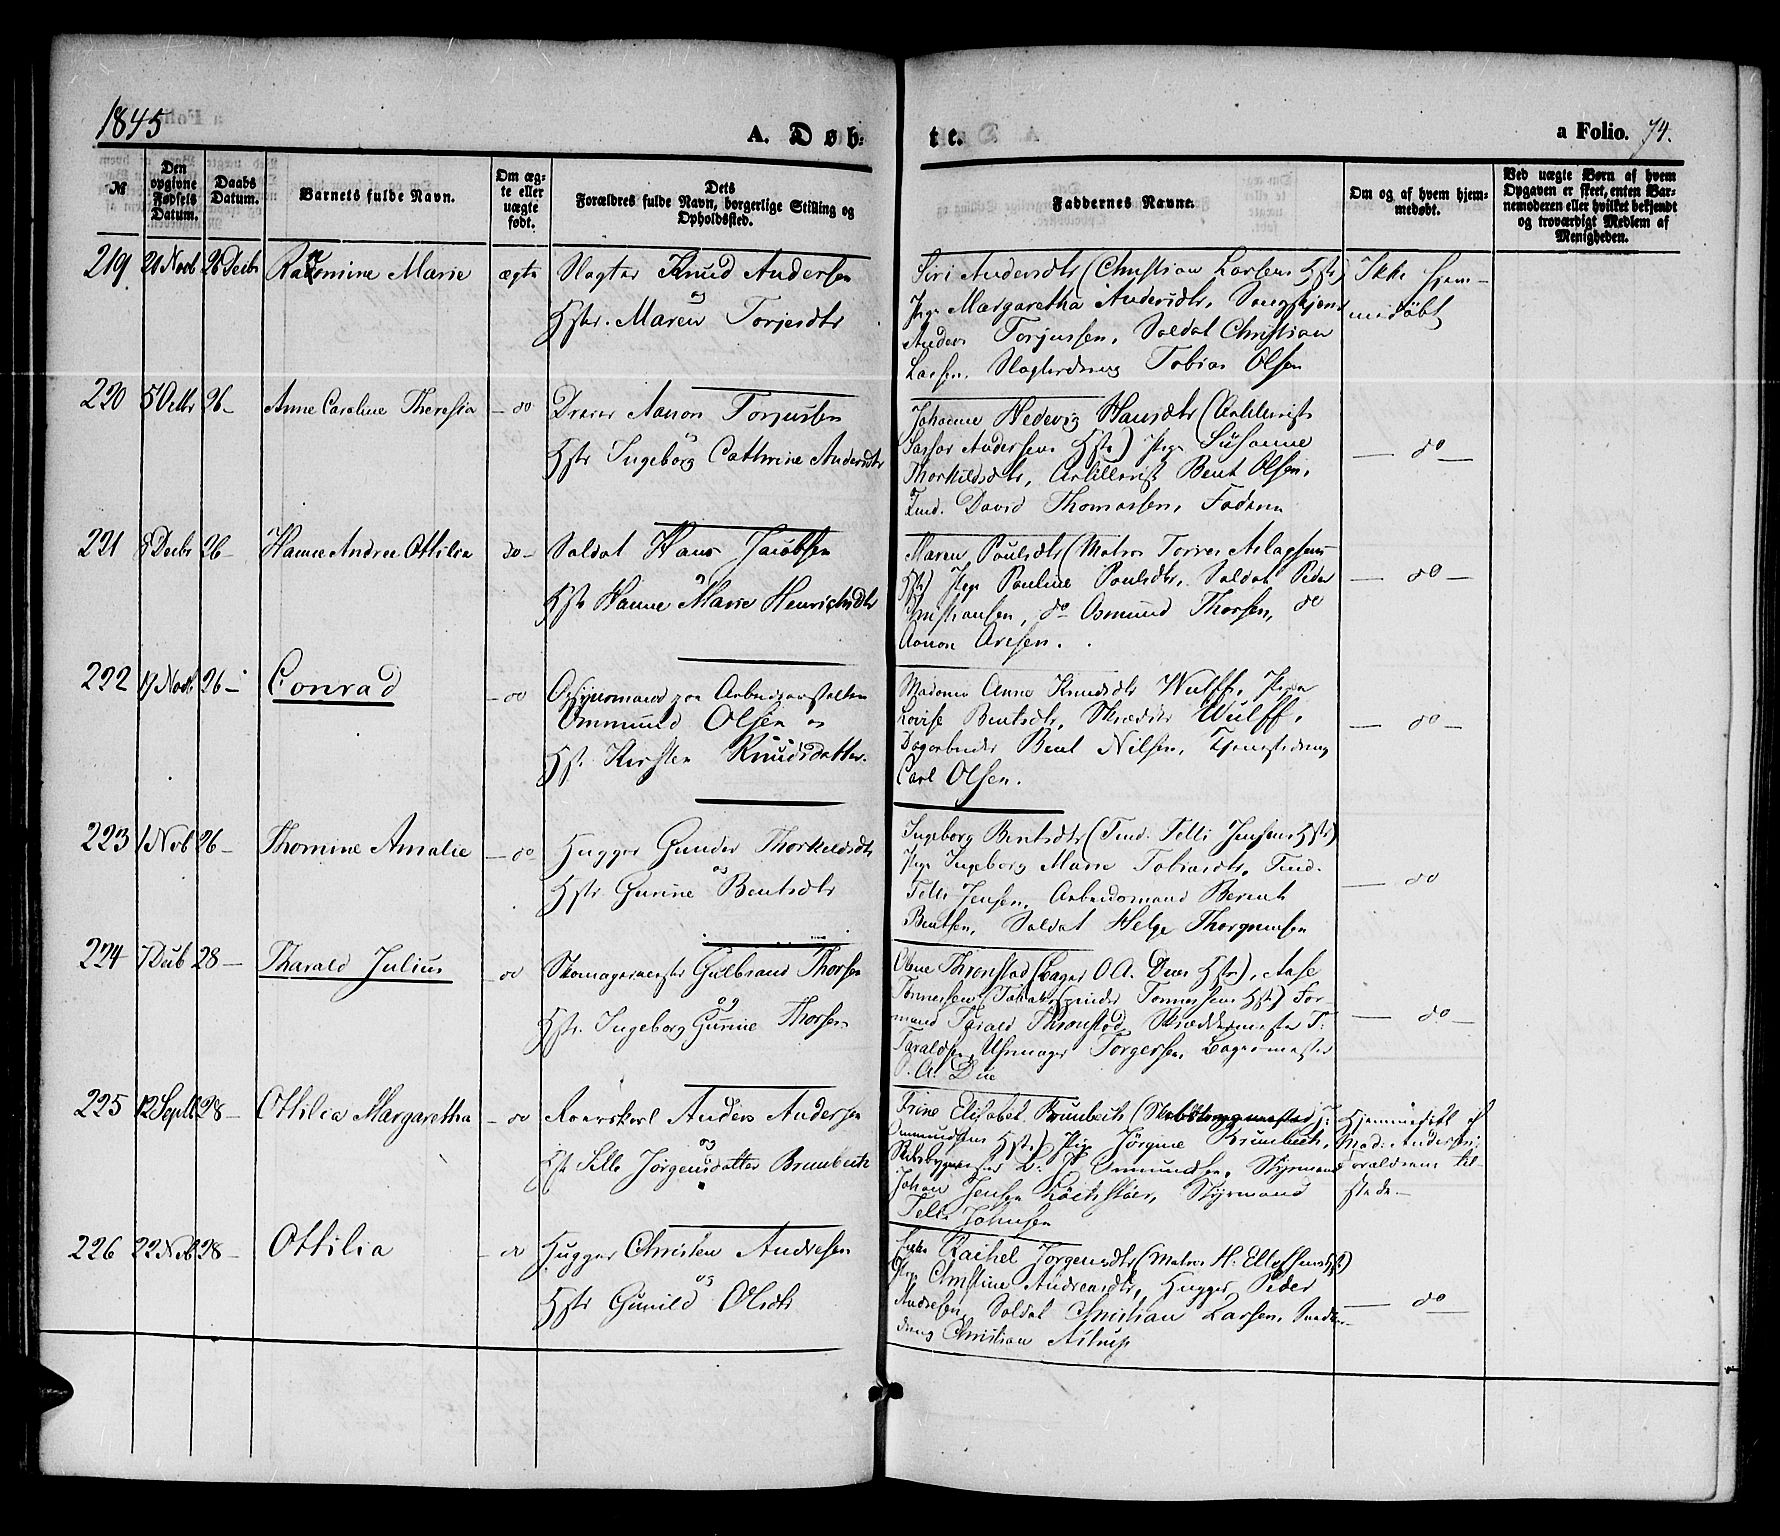 1845
A. Døb-
te.
a Folio. 74.
№
Den opgivne Fødsels Datum.
Daabs Datum.
Barnets fulde Navn.
Om ægte eller uægte født.
Dets Forældres fulde Navn, borgerlige Stilling og Opholdssted.
Faddernes Navne.
Om og af hvem hjemmedøbt.
Ved uægte Børn af hvem Opgaven er skeet, enten Barnemoderen eller hvilket bekjendt og troværdigt Medlem af Menigheden.
219 21 Novb 26 Decbr
Marie
ægte
Slagter Knud Andersen
og
Hstr. Maren Torjersdtr
Siri Andersdtr (Christian Larsens Hstr)
Pige Margaretha Andersdtr,
Anders Torjussen, Soldat Christian
Larsen, Tobias Olsen
Ikke hjem-
medøbt
220 26-
Anne Caroline Theresia
- do
Aanon Torjussen
og
Hstr Ingeborg Cathrine Andersdtr
Johanne Hedevig Hansdtr (Artillerist
Andersens Hstr) Pige Susanne
Thorkildsdtr, Artillerist Bent Olsen,
David Thomassen, Faderen
- do -
221 8 Decbr 26-
Hanne Andree Ottilia
do -
Soldat Hans Jacobsen
og
Hstr Hanne Marie
Maren Poulsdtr (Matros Aslagsens
Hstr) Pige Pauline Poulsdtr, Soldat Peder
Christiansen, do Osmund Thorsen, do
Aanon Aresen.
- do -
222 26-
Conrad
- do
Opsynsmand paa Arbeidsanstalten
Ommund Olsen og
Hstr. Kirsten Knudsdatter.
Madame Anne Knudsdtr Wulff, Pigen
Lovise Bentsdtr, Skrædder Wulff,
Dagarbeider Bent Nilsen, Tjenestedreng
Carl Olsen.
- do -
223 1 Novb 26-
Thomine Amalie
- do
Hugger Gunder Thorkildsdtr
og
Hstr Gurine Bentsdtr
Ingeborg Bentsdtr (Tellef Jensens Hstr)
Pige Ingeborg Marie Tobiasdtr,
Tellef Jensen, Arbeidsmand Berent
Bentsen, Soldat Helge Thorgrimsen
- do
224 28-
Tharald Julius
do
Skomagermester Gulbrand Thorsen
og
Hstr. Ingeborg Gurine Thorsen
Thronstad (Bager O. A. Dues Hstr), Aase
Tønnessen Tønnessens Hstr) For-
mand Tarald Thronstad, Skræddermester T:
Taraldsen, Uhrmager Torgersen, Bagermester
O. A. Due
- do -
225 12 Septb 28-
Ottilia Margaretha
- do
Anders Andersen
og
Jørgensdatter Brumbeck
Trine Elisabet Brumbeck
Ommundsens Hstr) Pige Jørgine Brumbeck,
Skibsbygmester Ommundsen, Styrmand
Johan Jensen Styrmand
Tellef Johnsen
Hjemmedøbt af
Mad: Andersen,
Forældrene til-
stede-
226 22 Novb 28-
Ottilia
- do
Hugger Christen Andresen
og
Hstr Gunild Olsdtr
Enke Rachel Jørgensdtr (Matros H: Ellefsens Hstr)
Pige Christine Andreasdtr, Hugger Peder
Andresen, Soldat Christian Larsen,
dreng Christian Astrup
- do -